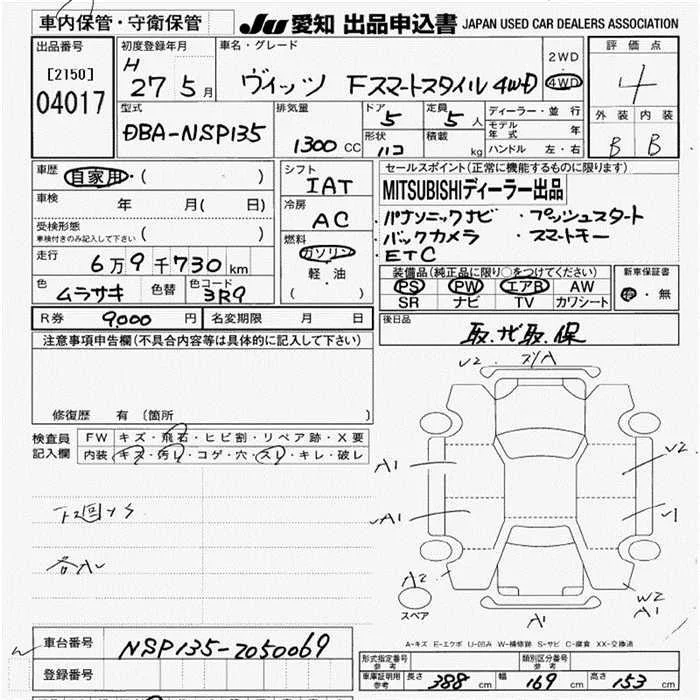 車内保管・守衛保管 JU 愛知 出品申込書 JAPAN USED CAR DEALERS ASSOCIATION
出品番号
[2150]
04017
初度登録年月
H 27 5月
車名・グレード
ヴィッツ Fスマートスタイル4WD
2WD
4WD
評価点
4
外装 内装
B B
型式
DBA-NSP135
排気量
1300 CC
ドア 5
形状 ハコ
定員 5 人
積載 kg
ディーラー・並行
モデル年式 年
ハンドル 左・右
車歴 自家用・( )
車検 年 月( 日)
受検形態
車検付きのみ記入して下さい ( )
走行
6万9千730km
色 ムラサキ 色替
色コード 3R9
シフト
IAT
冷房
AC
燃料
ガソリン
軽・油
( )
セールスポイント(正常に機能するものに限ります)
MITSUBISHIディーラー出品
・パナソニックナビ ・プッシュスタート
・バックカメラ ・スマートキー
・ETC
装備品(純正品に限り○をつけてください)
PS PW エアB AW
SR ナビ TV カワシート
新車保証書
有・無
R券 9,000 円 名変期限 月 日
後日品
取.ナビ取.保
注意事項申告欄(不具合内容等は具体的に記入して下さい)
修復歴 有 〔箇所 〕
検査員記入欄
FW キズ・飛石・ヒビ割・リペア跡・X要
内装 キズ・汚レ・コゲ・穴・スレ・キレ・破レ
下回りS
V2
A1
V2
A1
A2
W2
A1
A1
スペア
A-キズ E-エクボ U-凹み W-補修跡 S-サビ C-腐食 XX-交換済
車台番号 NSP135-2050069
登録番号
形式指定番号 参考
類別区分番号 参考
車庫証明用 参考
長さ 388 cm 幅 169 cm 高さ 153 cm